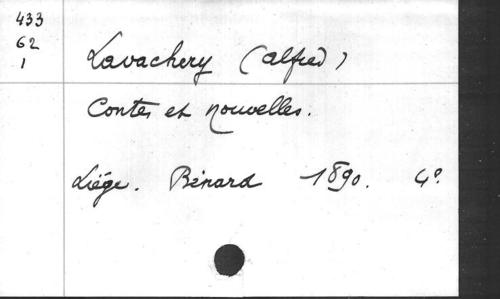 433
62
1
Lavachery (Alfred)
Contes et nouvelles.
Liége. Bénard 1890. 4º